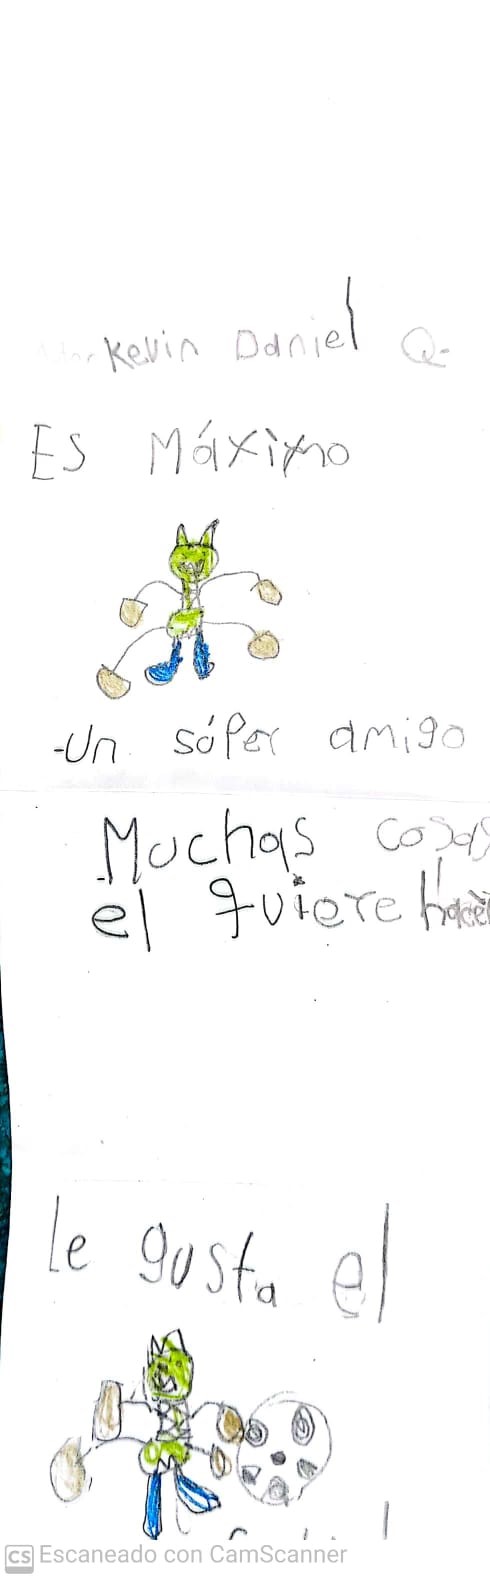 Kevin Daniel Q.
Es Máximo
-Un súper amigo
Muchas cosas
el quiere Hacer
Le gusta el
CS Escaneado con CamScanner